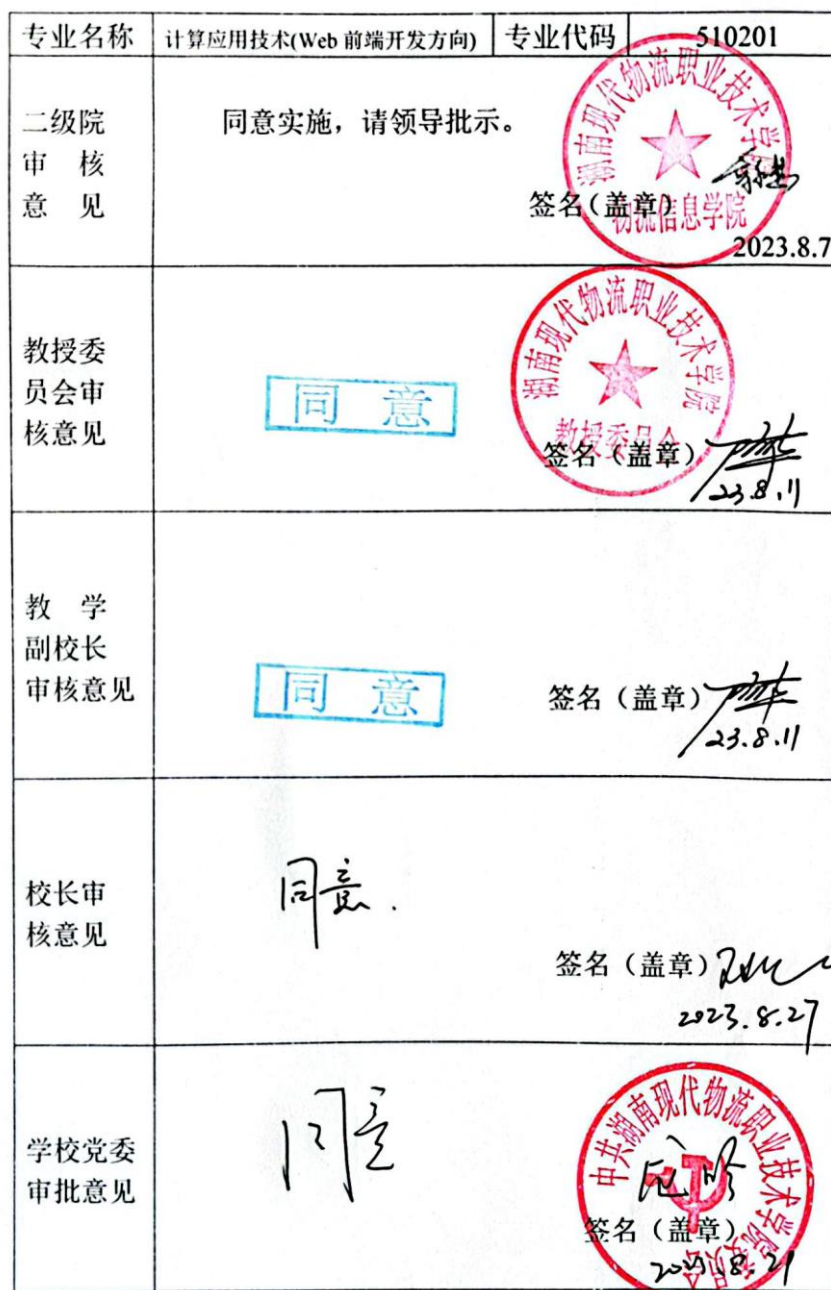 专业名称 计算应用技术(Web 前端开发方向) 专业代码 510201
二级院
审 核
意 见
同意实施，请领导批示。
湖南现代物流职业技术学院
物流信息学院
签名（盖章）
2023.8.7
教授委
员会审
核意见
同 意
湖南现代物流职业技术学院
教授委员会
签名（盖章）
23.8.11
教 学
副校长
审核意见
同 意
签名（盖章）
23.8.11
校长审
核意见
同意.
签名（盖章）
2023.8.27
学校党委
审批意见
同意
中共湖南现代物流职业技术学院委员会
签名（盖章）